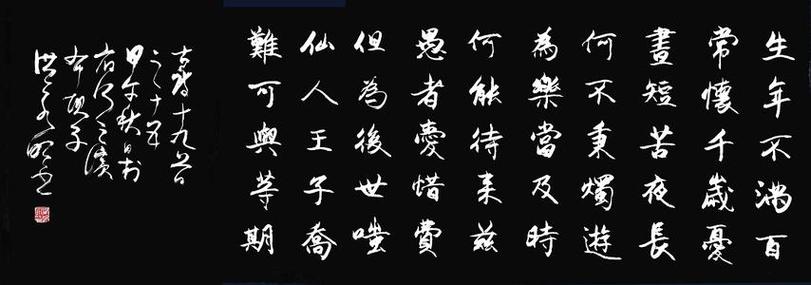 生年不滿百
常懷千歲憂
晝短苦夜長
何不秉燭遊
為樂當及時
何能待来茲
愚者愛惜費
但為後世嗤
仙人王子喬
難可與等期
古詩十九首
之十五
甲午秋日於